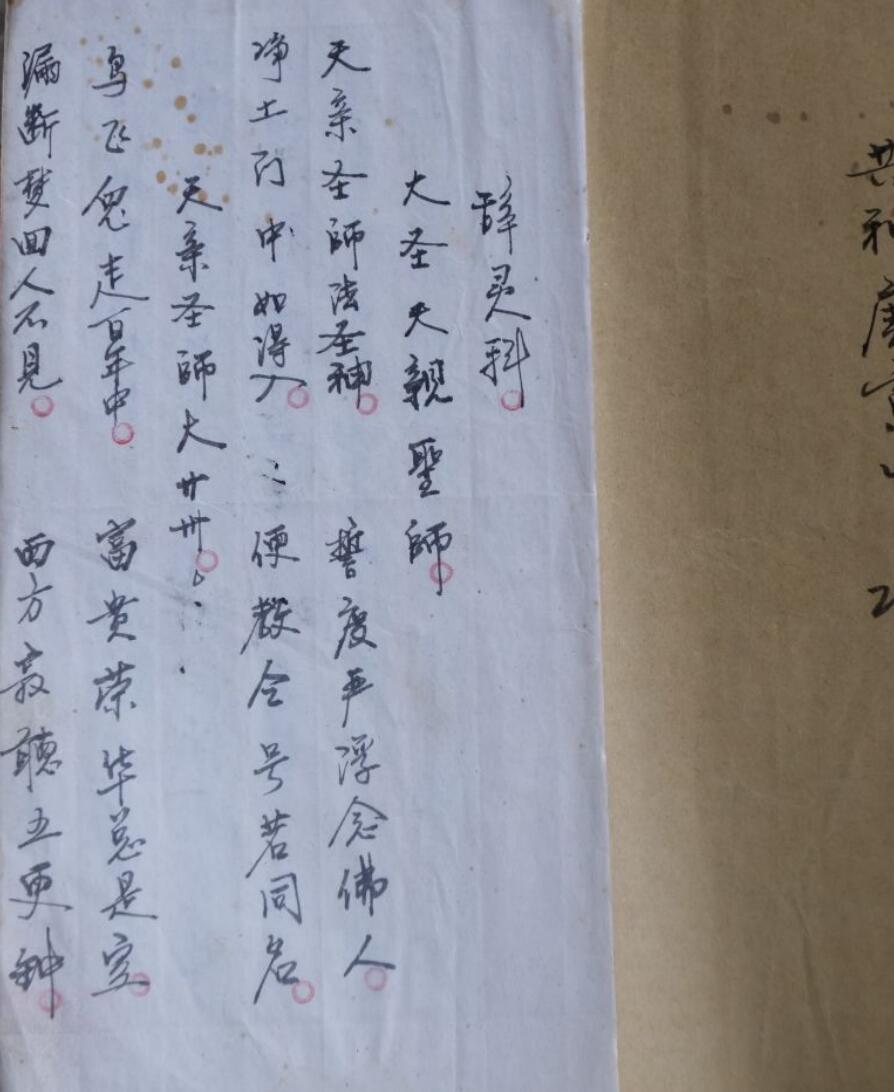 辞灵科
大圣天親聖師
天亲圣師法圣神 誓度 浮念佛人
净土门中如得入 便教令号若同名
天亲圣師大
鸟飞兔走百年中 富贵荣华总是空
漏断梦回人不見 西方 聽五更鈡
共和